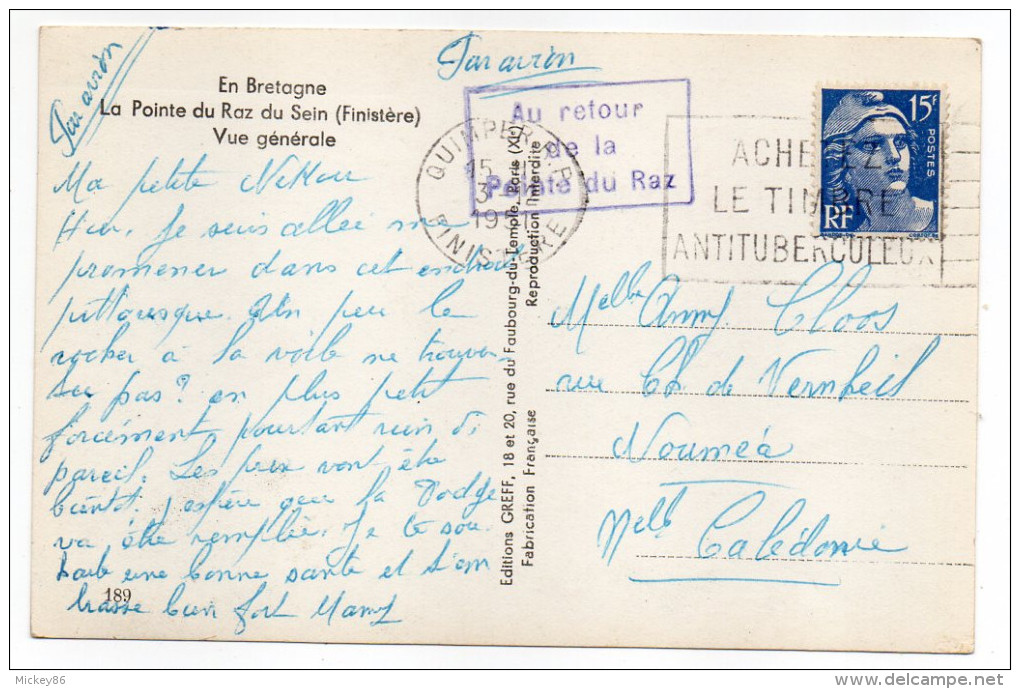 Par avion
En Bretagne
La Pointe du Raz du Sein (Finistère)
Vue générale
Ma petite
Hier, je suis allée me
promener dans cet endroit
pittoresque. Un peu le
rocher à la voile ne trouves-
tu pas? en plus petit
forcément pourtant rien de
pareil. Les prix vont être
bientôt. j'espère que la Dodge
va être remplie. Je te sou-
haite une bonne santé et t'em
brasse bien fort Mamy
189
Editions GREFF, 18 et 20, rue du Faubourg-du-Temple, Paris (XI)
Reproduction Interdite
Fabrication Française
Par avion
Au retour
de la
Pointe du Raz
QUIMPER R.P.
15
3
19
FINISTERE
ACHETEZ
LE TIMBRE
ANTITUBERCULEUX
15F
POSTES
RF
Melle Anny Cloos
rue Ch. de Verneilh
Nouméa
Nelle Calédonie
Mickey86
www.delcampe.net